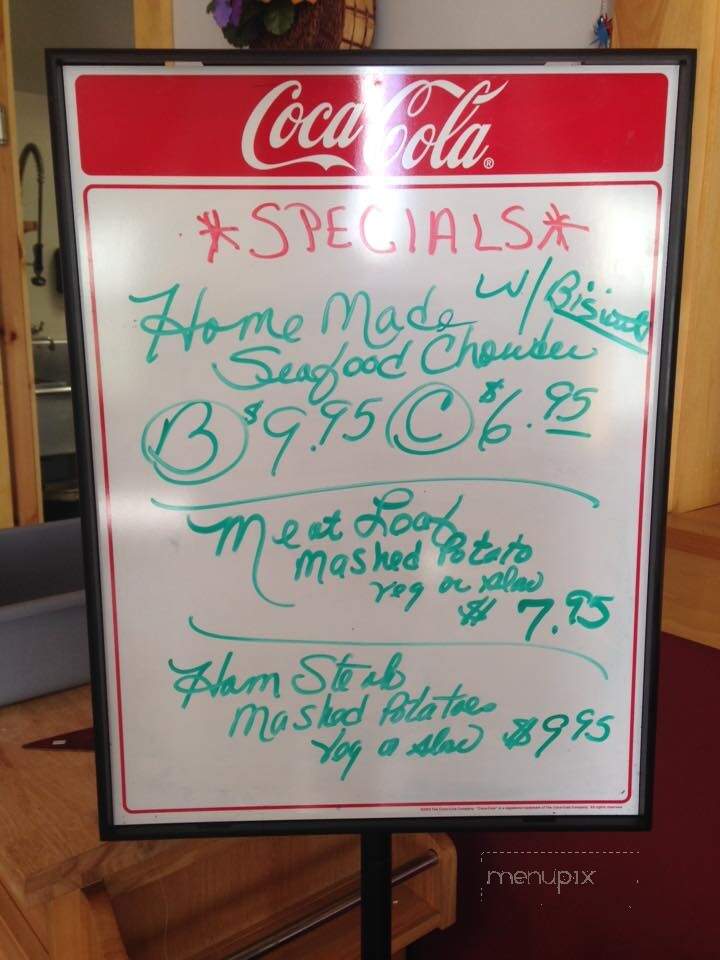 Coca-Cola®
*SPECIALS*
Home Made w/ Biscuit
Seafood Chowder
B $9.95 C $6.95
Meat Loaf
Mashed Potato
veg or slaw
$ 7.95
Ham Steak
Mashed Potatoes
Veg or slaw $9.95
menupix